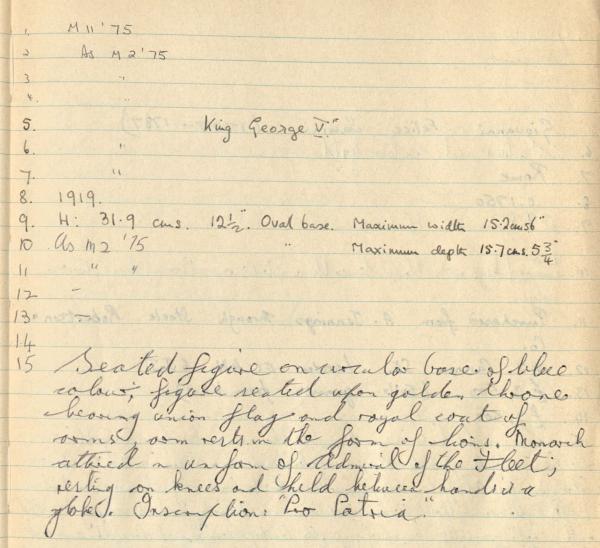 1. M 11 '75
2 As M 2 '75
3 "
4. "
5. King George V."
6. "
7. "
8. 1919.
9. H: 31.9 cms. 12½". Oval base. Maximum width 15.2cms 6"
10 As M2 '75 " Maximum depth 15.7cms. 5¾"
11 " "
12 -
13 -
14
15 Seated figure on circular base of blue
colour; figure seated upon golden throne
bearing union flag and royal coat of
arms, arm rests in the form of lions. Monarch
attired in uniform of Admiral of the Fleet;
resting on knees and held between hands is a
globe. Inscription: "Pro Patria."